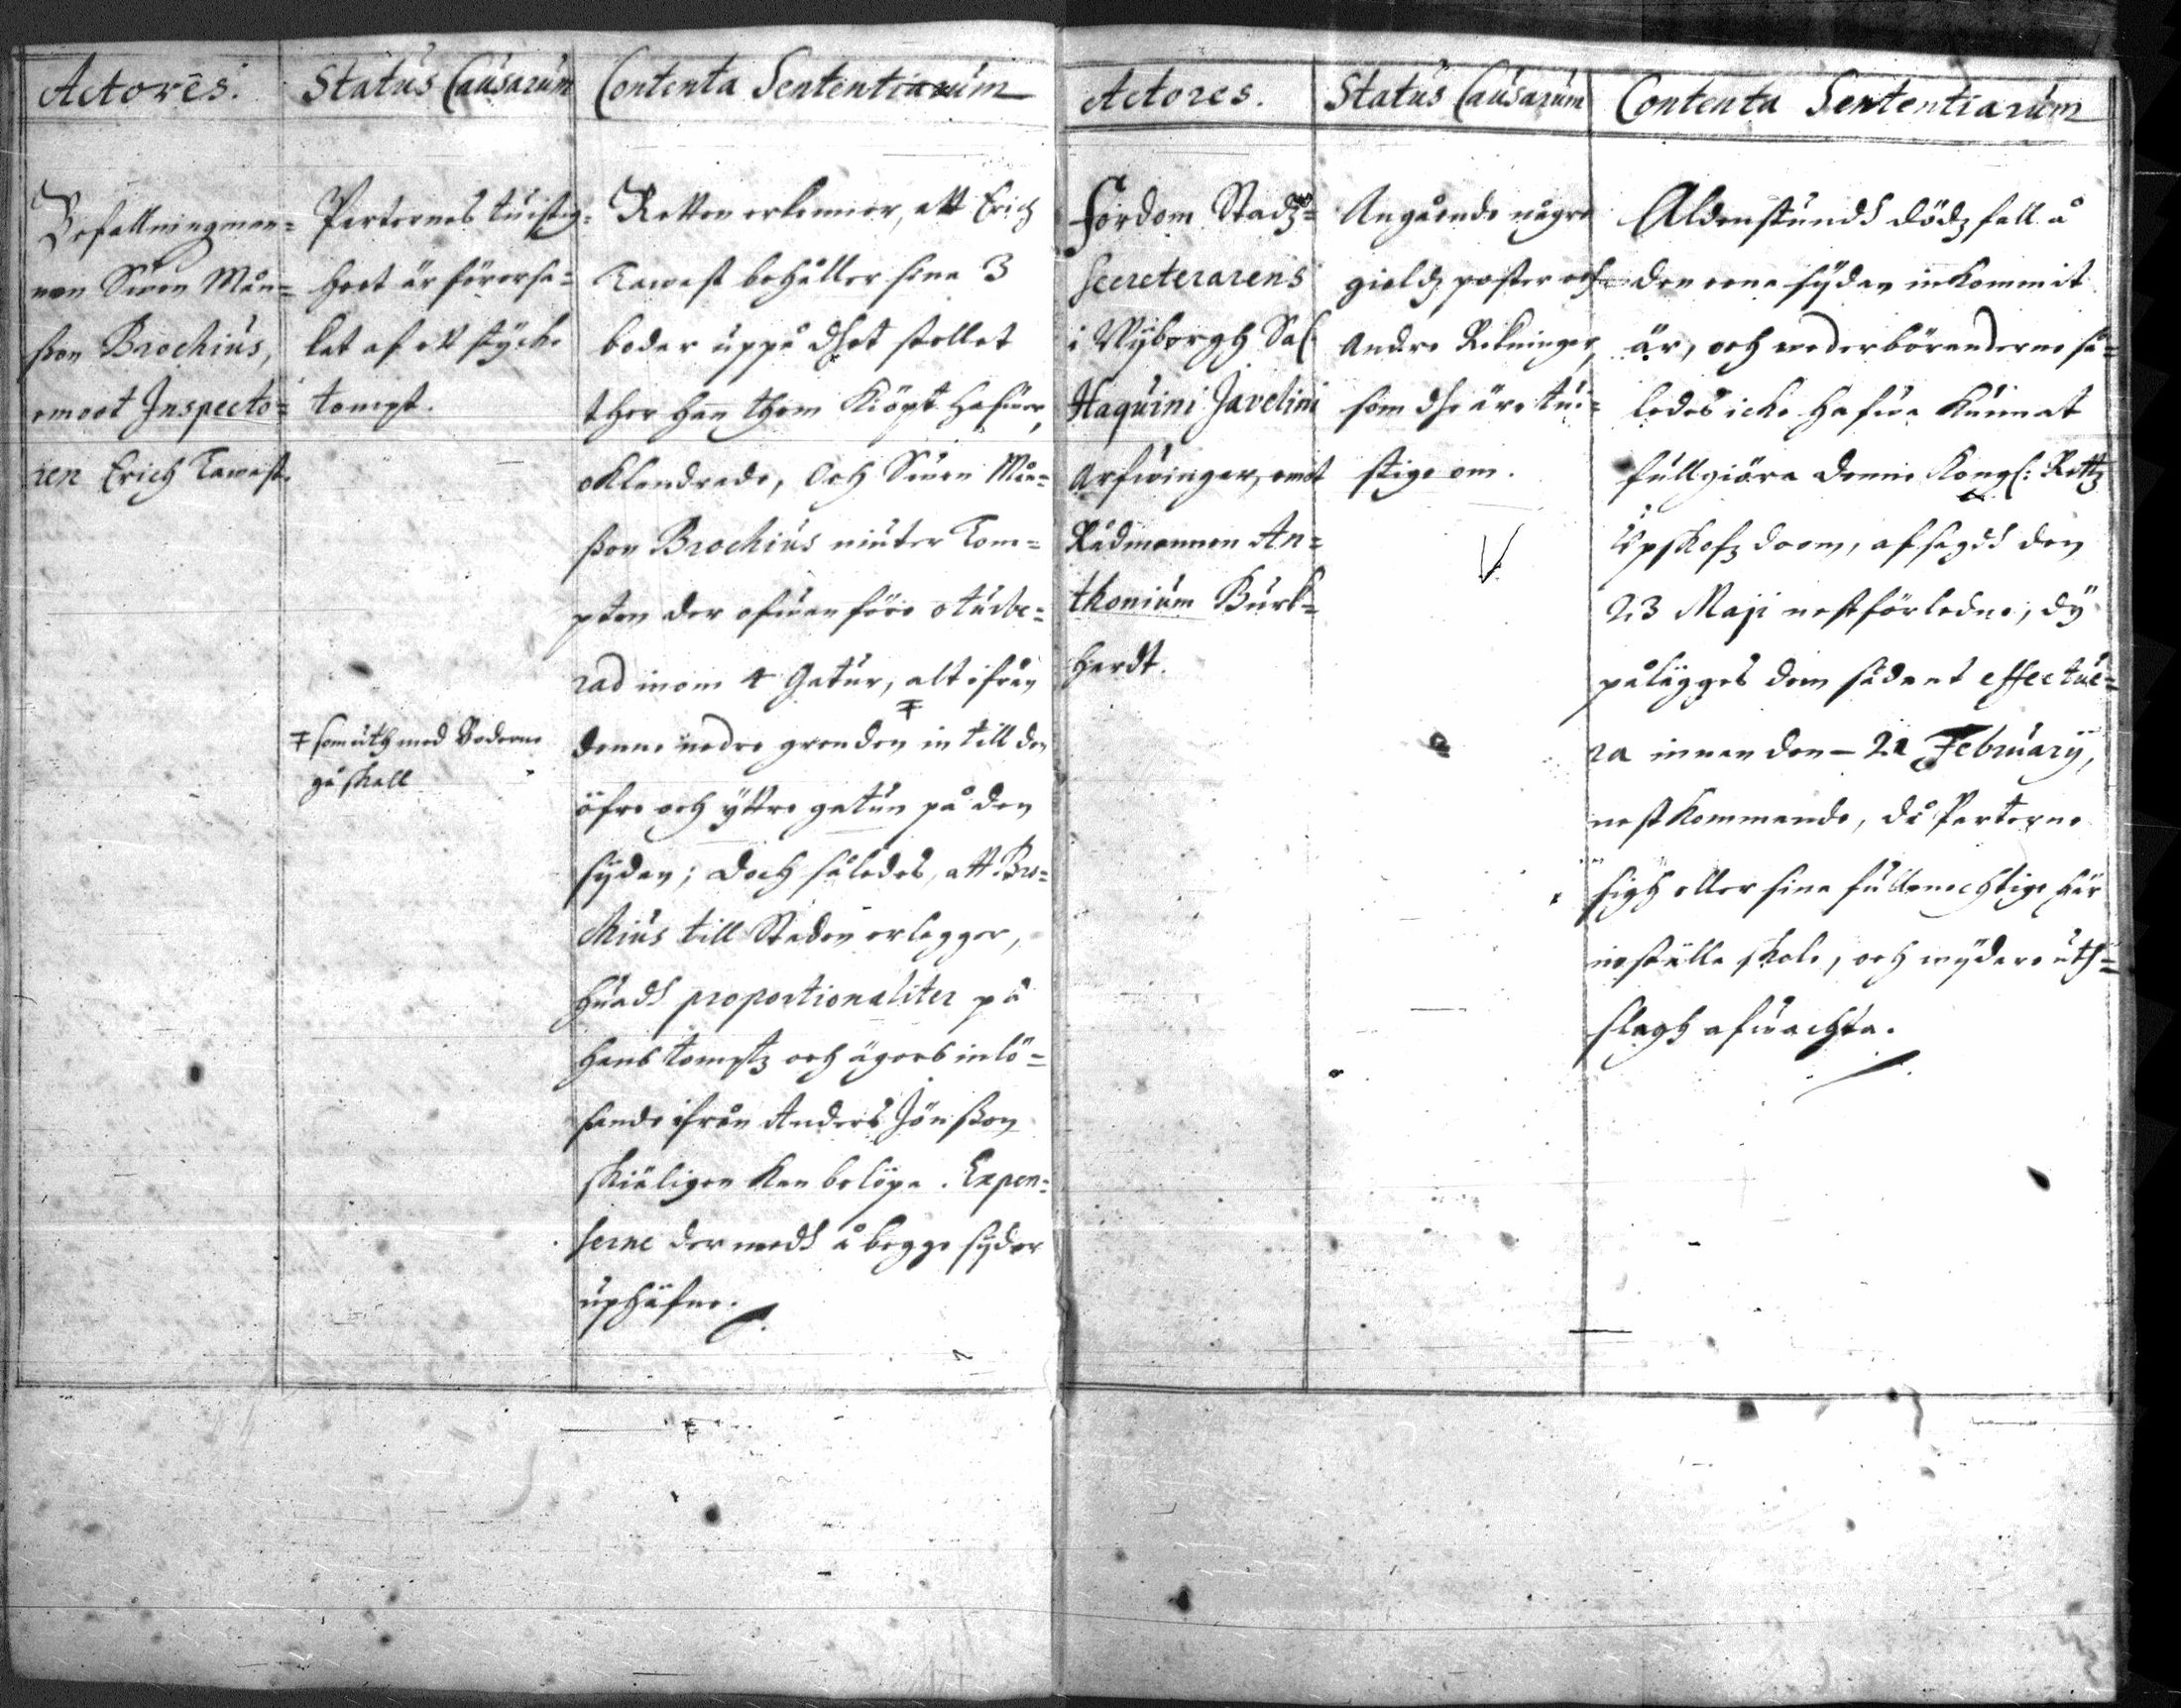 Actores.
Status Causarum
Contenta Sententiarum
Befallningzman=
nen Swen Mån=
sson Brochius,
emoot Inspecto=
ren Erich Tawast.
Parternes tuistig=
heet är förorsa=
kat af ett stycke
tompt.
Ŧ som uth med Boderne
gå skall
Rätten erkenner, att Erich
Tawast behåller sine 3
boder uppå dhet stellet
ther han them kiöpt hafwer,
oklandrade, och Swen Mån=
sson Brochius niuter Tom=
pten der ofwanföre oturbe=
rad inom 4 Gatur, alt ifrån
denne nedre grenden Ŧ in till den
öfre och yttre gatun på den
sydan; doch således, att Bro=
chius till Staden erlegger,
huadh proportionaliter på
hans tomptz och ägors inlö=
sande ifrån Anders Jönsson
skiäligen kan belöpa. Expen=
serne der medh å begge sydor
uphäfne.
Actores.
Status Causarum
Contenta Sententiarum
Fordom Stadz=
Secreterarens
i Wyborgh Sal
Haquini Javelini
Arfwingar, emot
Rådmannen An=
thonium Burk=
hardt.
Angående någre
gieldz poster och
andre Rekninger,
som dhe äre tui=
stige om.
Aldenstundh dödzfall å
den eena sydan inkommit
är, och wederböranderne så=
ledes icke hafwa kunnat
fullgiöra denne Kongl: Rettz
Upskofz doom, afsagdh den
23 Maji nestförledne, dy
pålägges dem sådant effectue=
ra innan den - 21 February,
nestkommande, då Parterne
sigh eller sine fullmechtige här
inställa skole, och wydare uth=
slagh afwachta.